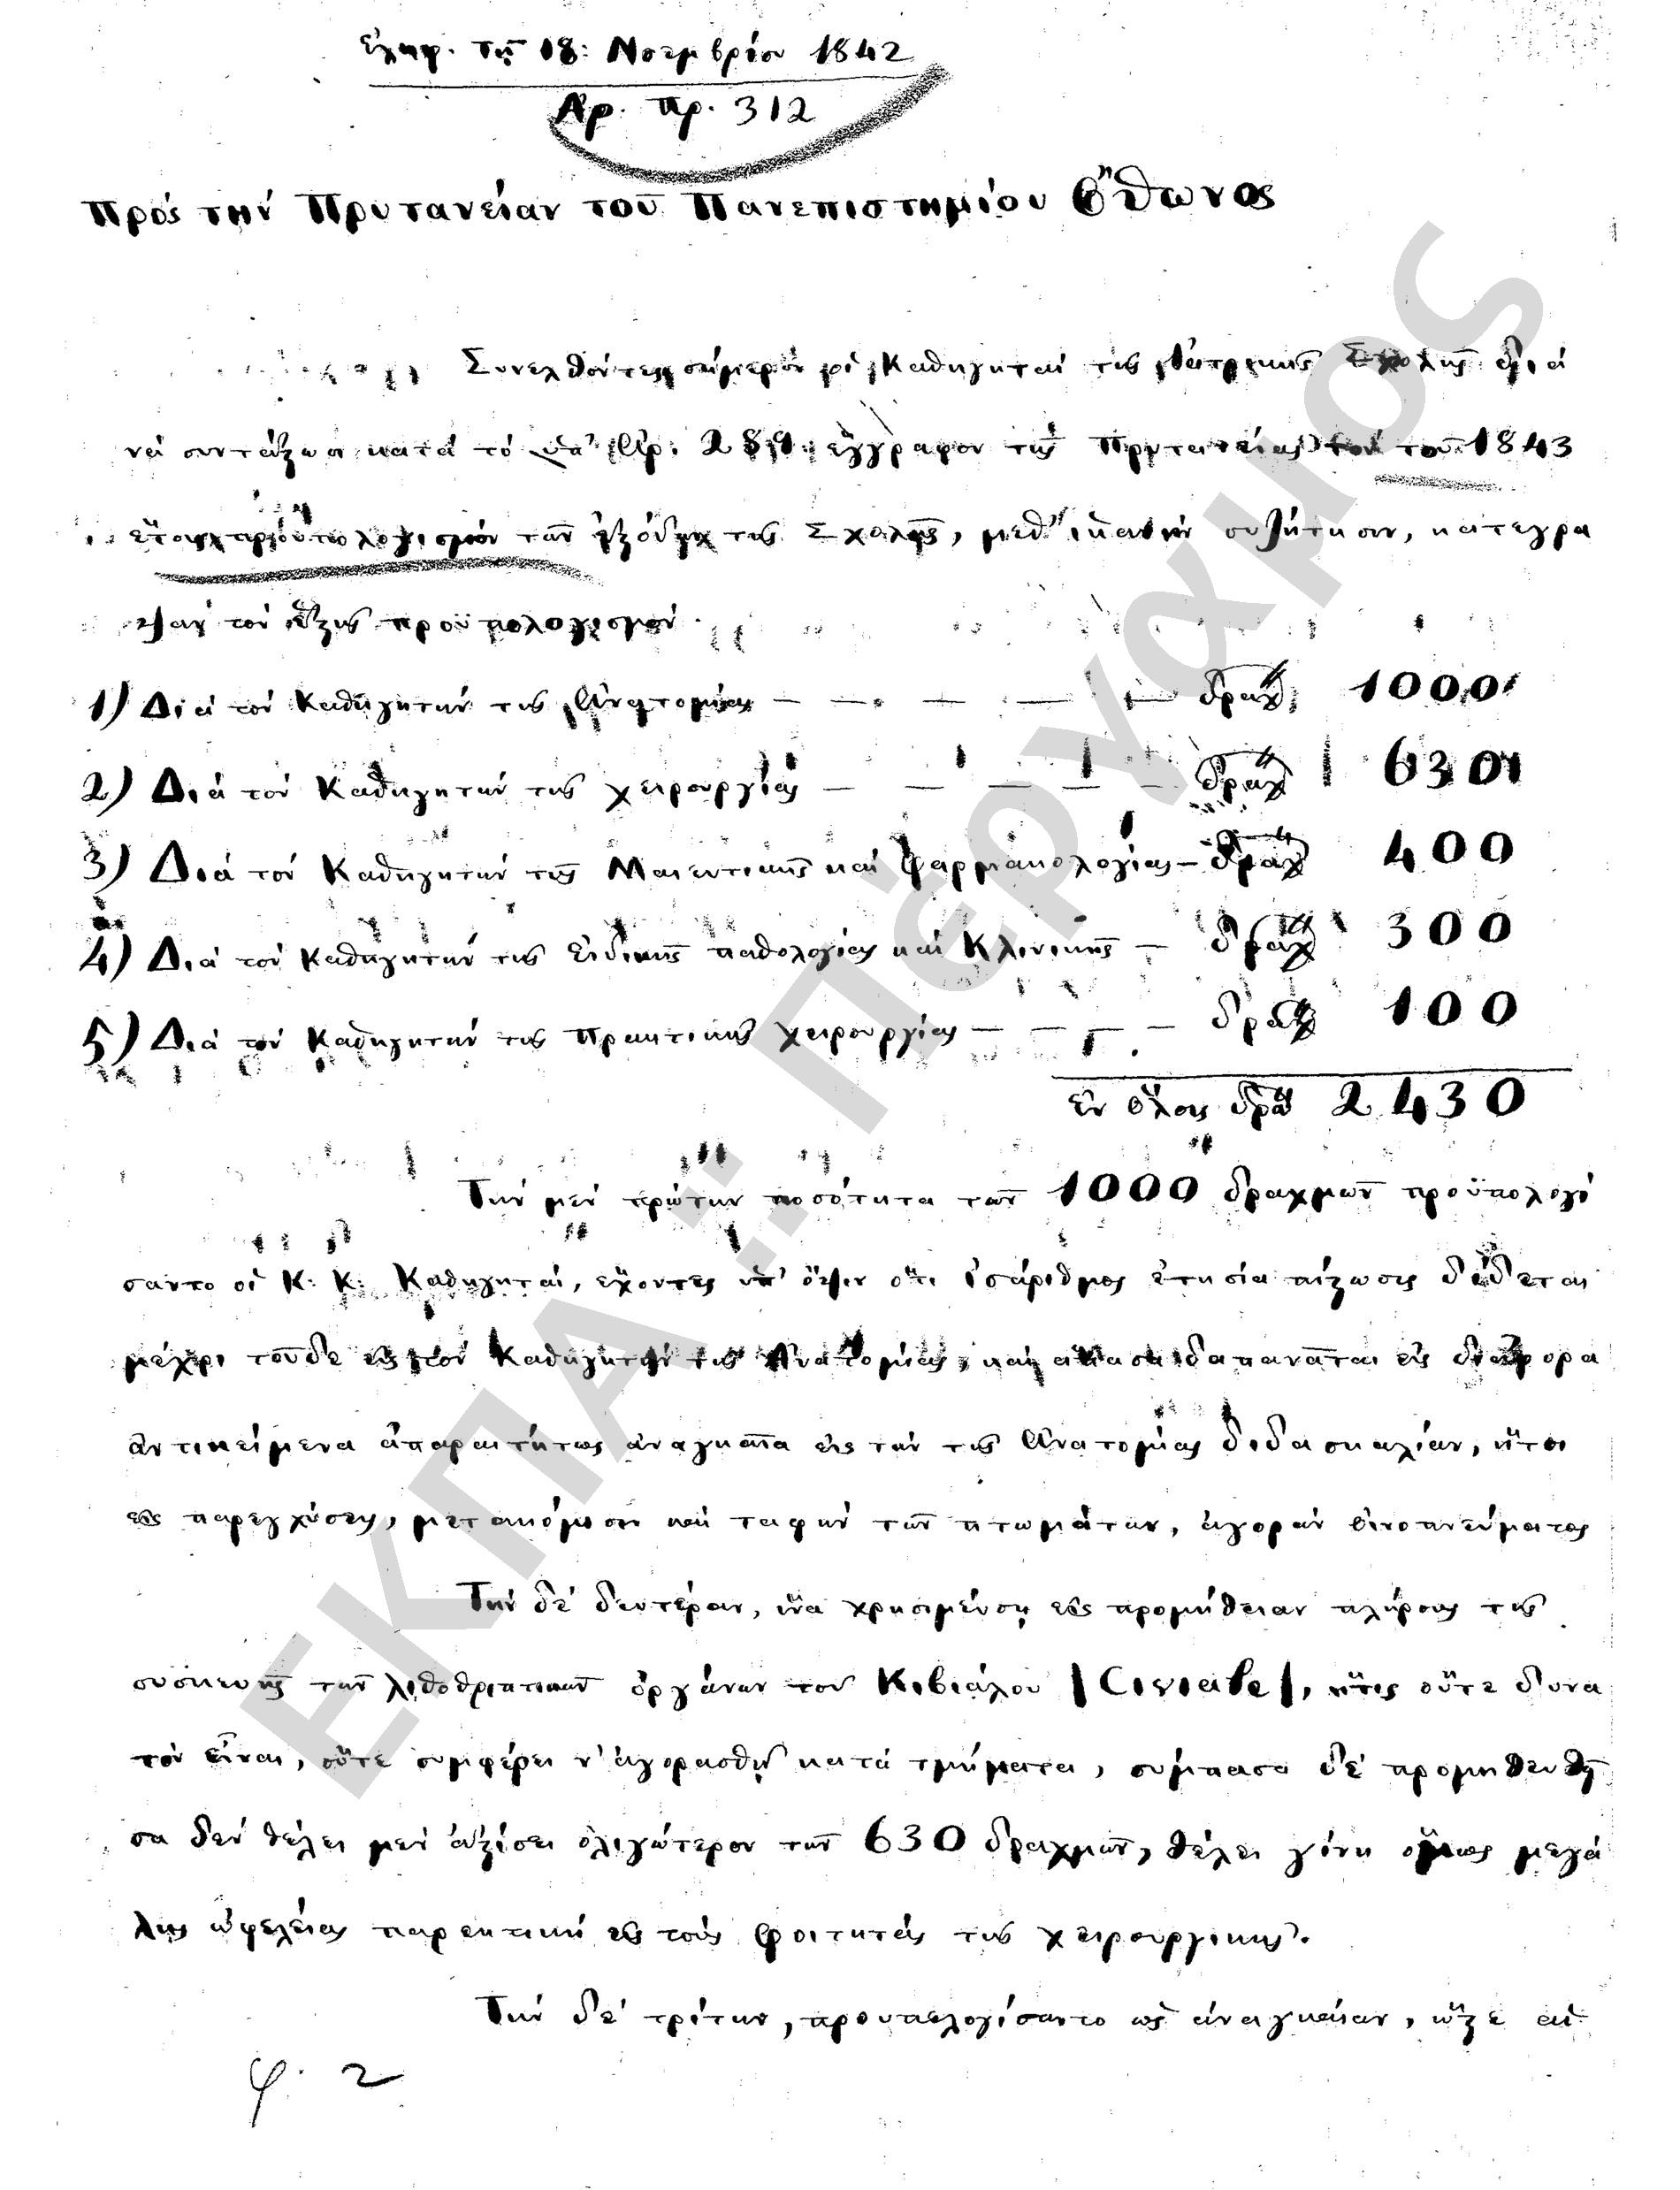 ἐλήφ. τῇ 18: Νοεμβρίου 1842
Ἀρ. πρ. 312
Πρός τήν Πρυτανείαν τοῦ Πανεπιστημίου Ὄθωνος
Συνελθόντες σήμερον οἱ Καθηγηταί τῆς Ἰατρικῆς Σχολῆς διά
νά συντάξωσι κατά τό ὑπ' Ἀρ. ἔγγραφον τῆς Πρυτανείας τόν τοῦ 1843
τῶν ἐξόδων τῆς Σχολῆς, μεθ' ἱκανήν συζήτησιν, κατεγρα
ψαν τόν ἑξῆς προϋπολογισμόν.
1) Διά τόν Καθηγητήν τῆς Ἀνατομίας — — — — — δραχ. 1000
2) Διά τόν Καθηγητήν τῆς χειρουργίας — — — — — δραχ 630
3) Διά τόν Καθηγητήν τῆς Μαιευτικῆς καί Φαρμακολογίας — δραχ 400
4) Διά τόν Καθηγητήν τῆς Εἰδικῆς παθολογίας καί Κλινικῆς — δραχ 300
5) Διά τόν Καθηγητήν τῆς Πρακτικῆς χειρουργίας — — — — δραχ 100
ἐν ὅλοις δρα 2430
Τήν μέν πρώτην ποσότητα τῶν 1000 δραχμῶν προϋπολογί
σαντο οἱ Κ: Κ: Καθηγηταί, ἔχοντες ὑπ' ὄψιν ὅτι ἰσάριθμος ἐτησία δίδεται
μέχρι τοῦδε εἰς τόν Καθηγητήν τῆς Ἀνατομίας, καί δαπανᾶται εἰς διάφορα
ἀντικείμενα ἀπαραιτήτως ἀναγκαῖα εἰς τήν τῆς Ἀνατομίας διδασκαλίαν, ἤτοι
εἰς παρεγχύσεις, μετακόμισιν καί ταφήν τῶν πτωμάτων, ἀγοράν οἰνοπνεύματος
Τήν δέ δευτέραν, ἵνα χρησιμεύσῃ εἰς προμήθειαν πλήρους τῆς
συσκευῆς τῶν λιθοθριπτικῶν ὀργάνων τοῦ Κιβιάλου |Civiale|, ἥτις οὔτε δυνα
τόν εἶναι, οὔτε συμφέρει ν' ἀγορασθῇ κατά τμήματα, σύμπασα δέ προμηθευθεῖ
σα δέν θέλει μέν ἀξίσει ὀλιγώτερον τῶν 630 δραχμῶν, θέλει γίνῃ ὅμως μεγά
λης ὠφελείας παρεκτική εἰς τούς φοιτητάς τῆς χειρουργικῆς.
Τήν δέ τρίτην, προυπελογίσαντο ὡς ἀναγκαίαν,
φ. 2
ΕΚΠΑ:: Πέργαμος